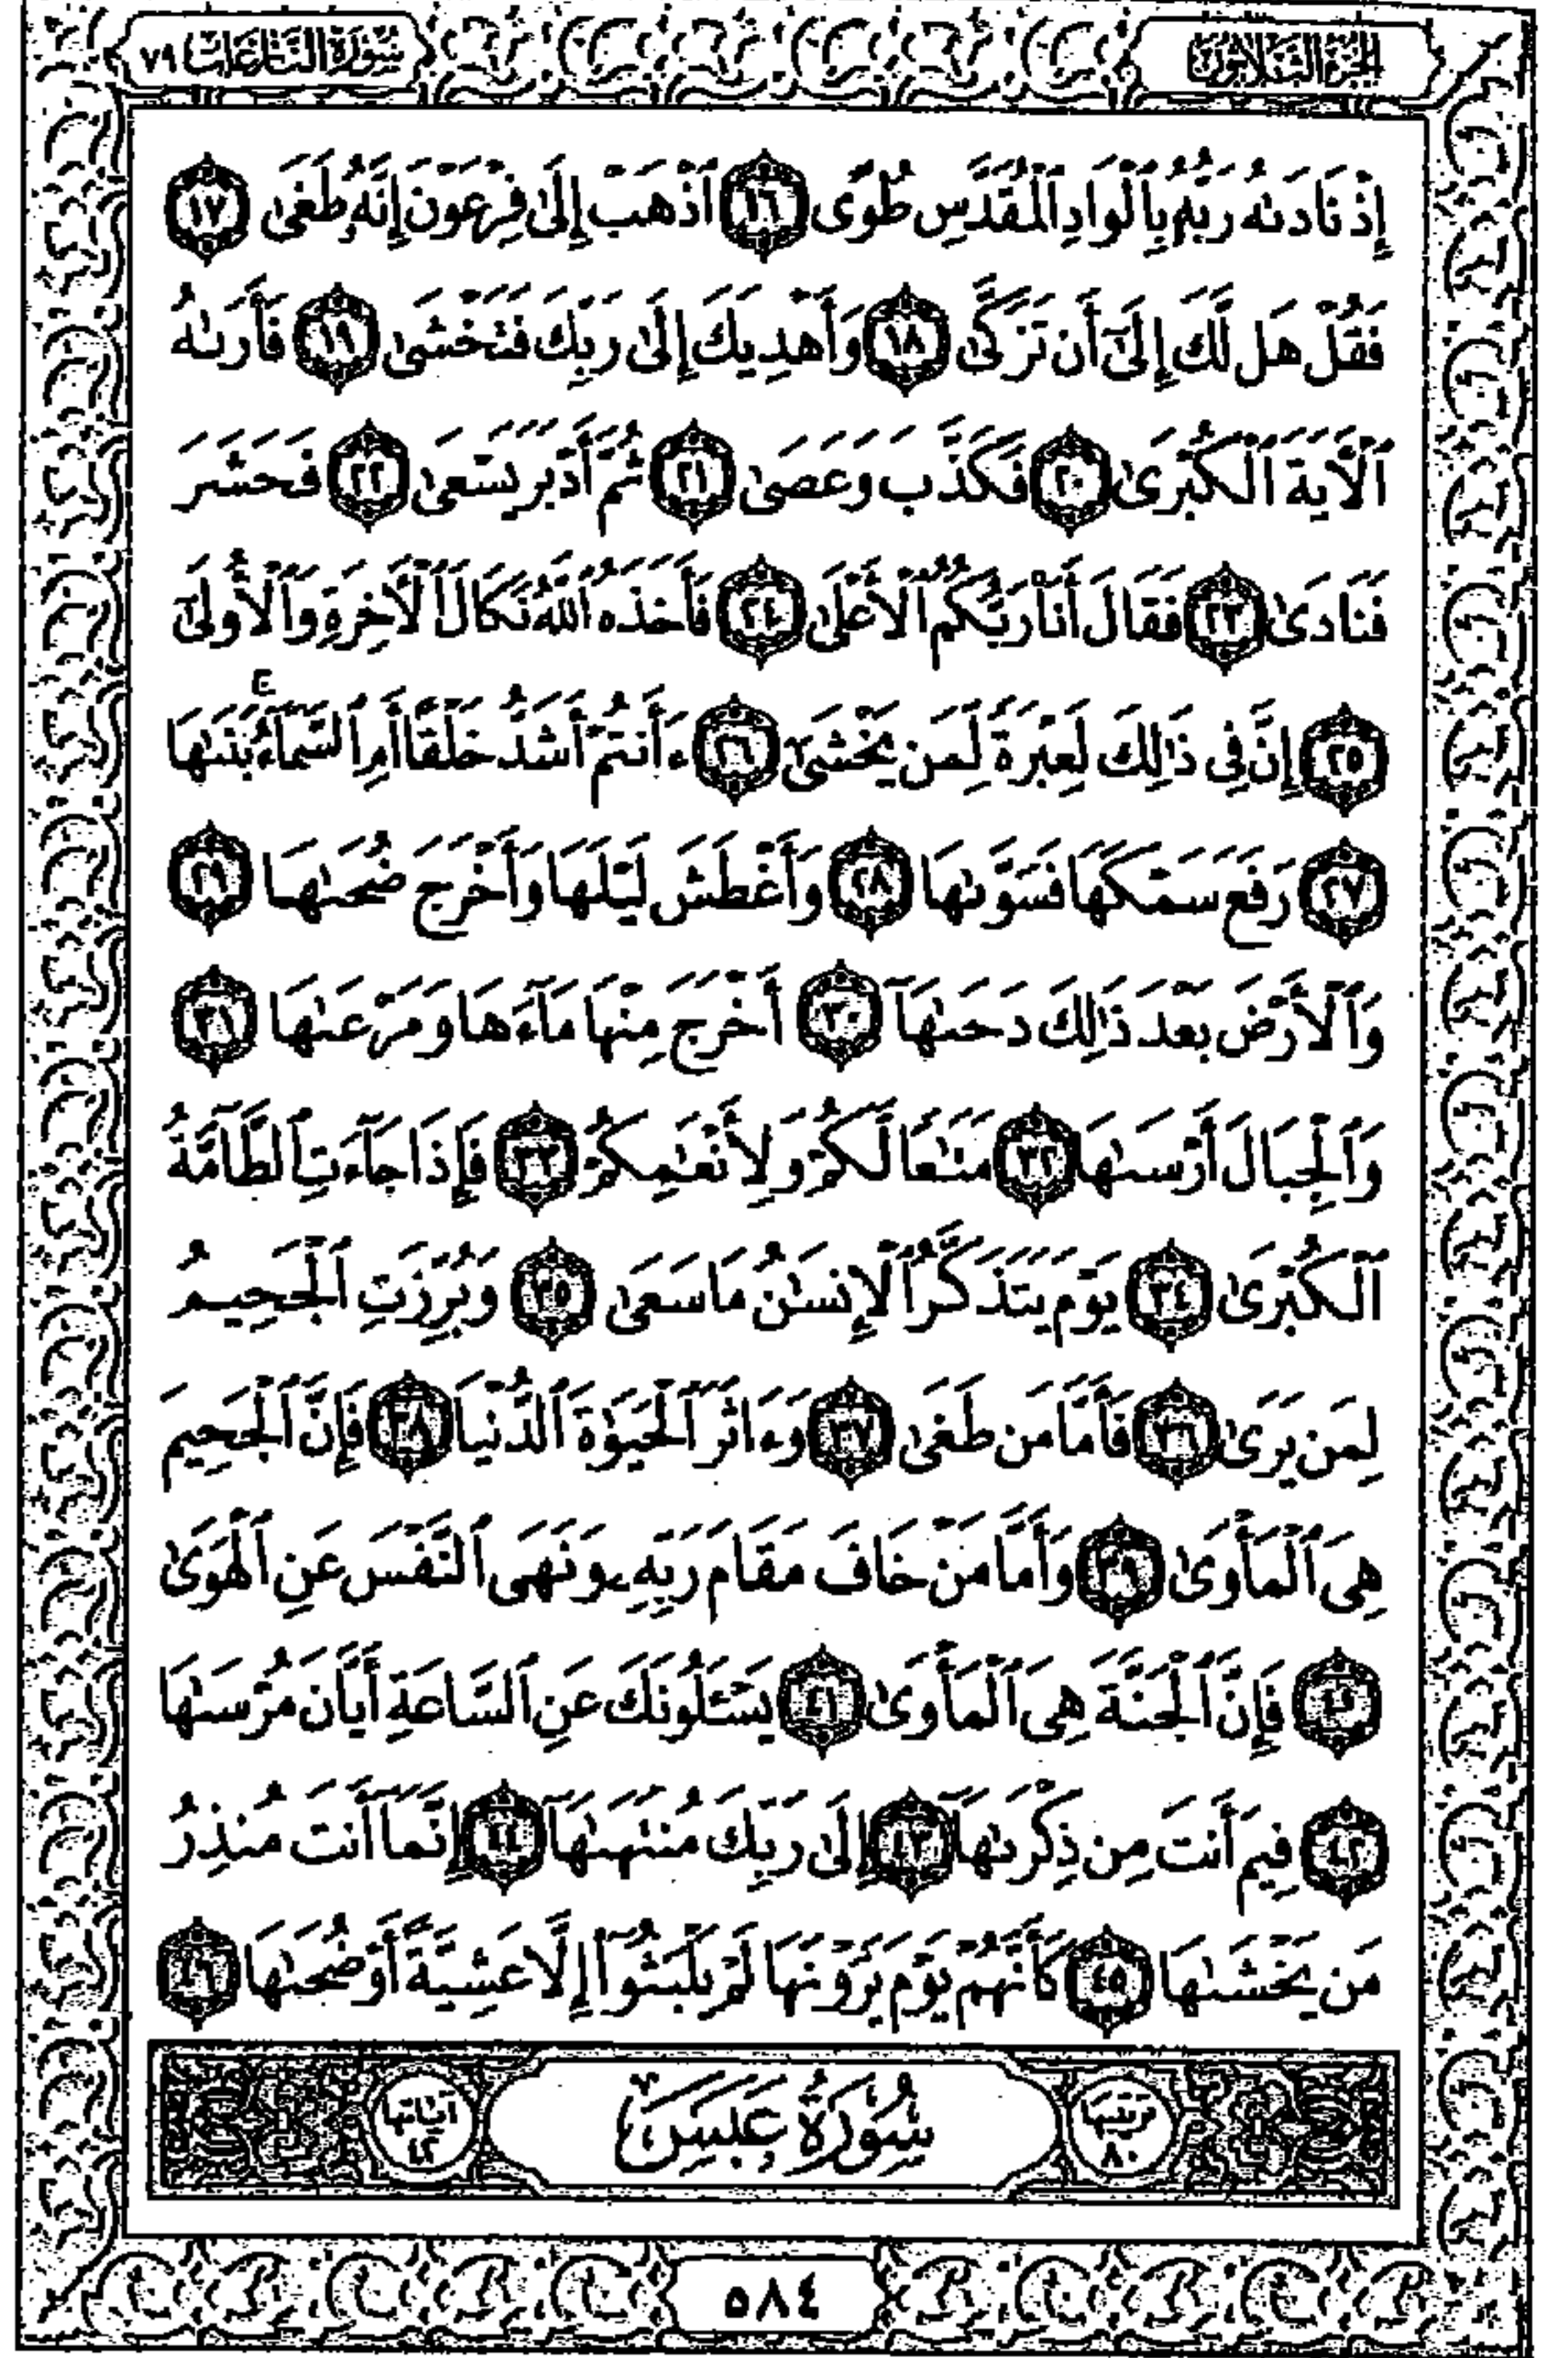 الجزء الثلاثون
سورة النازعات ٧٩
إِذْ نَادَىٰهُ رَبُّهُۥ بِٱلْوَادِ ٱلْمُقَدَّسِ طُوًى ١٦ ٱذْهَبْ إِلَىٰ فِرْعَوْنَ إِنَّهُۥ طَغَىٰ ١٧
فَقُلْ هَل لَّكَ إِلَىٰٓ أَن تَزَكَّىٰ ١٨ وَأَهْدِيَكَ إِلَىٰ رَبِّكَ فَتَخْشَىٰ ١٩ فَأَرَىٰهُ
ٱلْـَٔايَةَ ٱلْكُبْرَىٰ ٢٠ فَكَذَّبَ وَعَصَىٰ ٢١ ثُمَّ أَدْبَرَ يَسْعَىٰ ٢٢ فَحَشَرَ
فَنَادَىٰ ٢٣ فَقَالَ أَنَا۠ رَبُّكُمُ ٱلْأَعْلَىٰ ٢٤ فَأَخَذَهُ ٱللَّهُ نَكَالَ ٱلْـَٔاخِرَةِ وَٱلْأُولَىٰٓ
٢٥ إِنَّ فِى ذَٰلِكَ لَعِبْرَةً لِّمَن يَخْشَىٰٓ ٢٦ ءَأَنتُمْ أَشَدُّ خَلْقًا أَمِ ٱلسَّمَآءُ ۚ بَنَىٰهَا
٢٧ رَفَعَ سَمْكَهَا فَسَوَّىٰهَا ٢٨ وَأَغْطَشَ لَيْلَهَا وَأَخْرَجَ ضُحَىٰهَا ٢٩
وَٱلْأَرْضَ بَعْدَ ذَٰلِكَ دَحَىٰهَآ ٣٠ أَخْرَجَ مِنْهَا مَآءَهَا وَمَرْعَىٰهَا ٣١
وَٱلْجِبَالَ أَرْسَىٰهَا ٣٢ مَتَٰعًا لَّكُمْ وَلِأَنْعَٰمِكُمْ ٣٣ فَإِذَا جَآءَتِ ٱلطَّآمَّةُ
ٱلْكُبْرَىٰ ٣٤ يَوْمَ يَتَذَكَّرُ ٱلْإِنسَٰنُ مَا سَعَىٰ ٣٥ وَبُرِّزَتِ ٱلْجَحِيمُ
لِمَن يَرَىٰ ٣٦ فَأَمَّا مَن طَغَىٰ ٣٧ وَءَاثَرَ ٱلْحَيَوٰةَ ٱلدُّنْيَا ٣٨ فَإِنَّ ٱلْجَحِيمَ
هِىَ ٱلْمَأْوَىٰ ٣٩ وَأَمَّا مَنْ خَافَ مَقَامَ رَبِّهِۦ وَنَهَى ٱلنَّفْسَ عَنِ ٱلْهَوَىٰ
٤٠ فَإِنَّ ٱلْجَنَّةَ هِىَ ٱلْمَأْوَىٰ ٤١ يَسْـَٔلُونَكَ عَنِ ٱلسَّاعَةِ أَيَّانَ مُرْسَىٰهَا
٤٢ فِيمَ أَنتَ مِن ذِكْرَىٰهَآ ٤٣ إِلَىٰ رَبِّكَ مُنتَهَىٰهَآ ٤٤ إِنَّمَآ أَنتَ مُنذِرُ
مَن يَخْشَىٰهَا ٤٥ كَأَنَّهُمْ يَوْمَ يَرَوْنَهَا لَمْ يَلْبَثُوٓا۟ إِلَّا عَشِيَّةً أَوْ ضُحَىٰهَا ٤٦
ترتيبها ٨٠
سُورَةُ عَبَسَ
آياتها ٤٢
٥٨٤